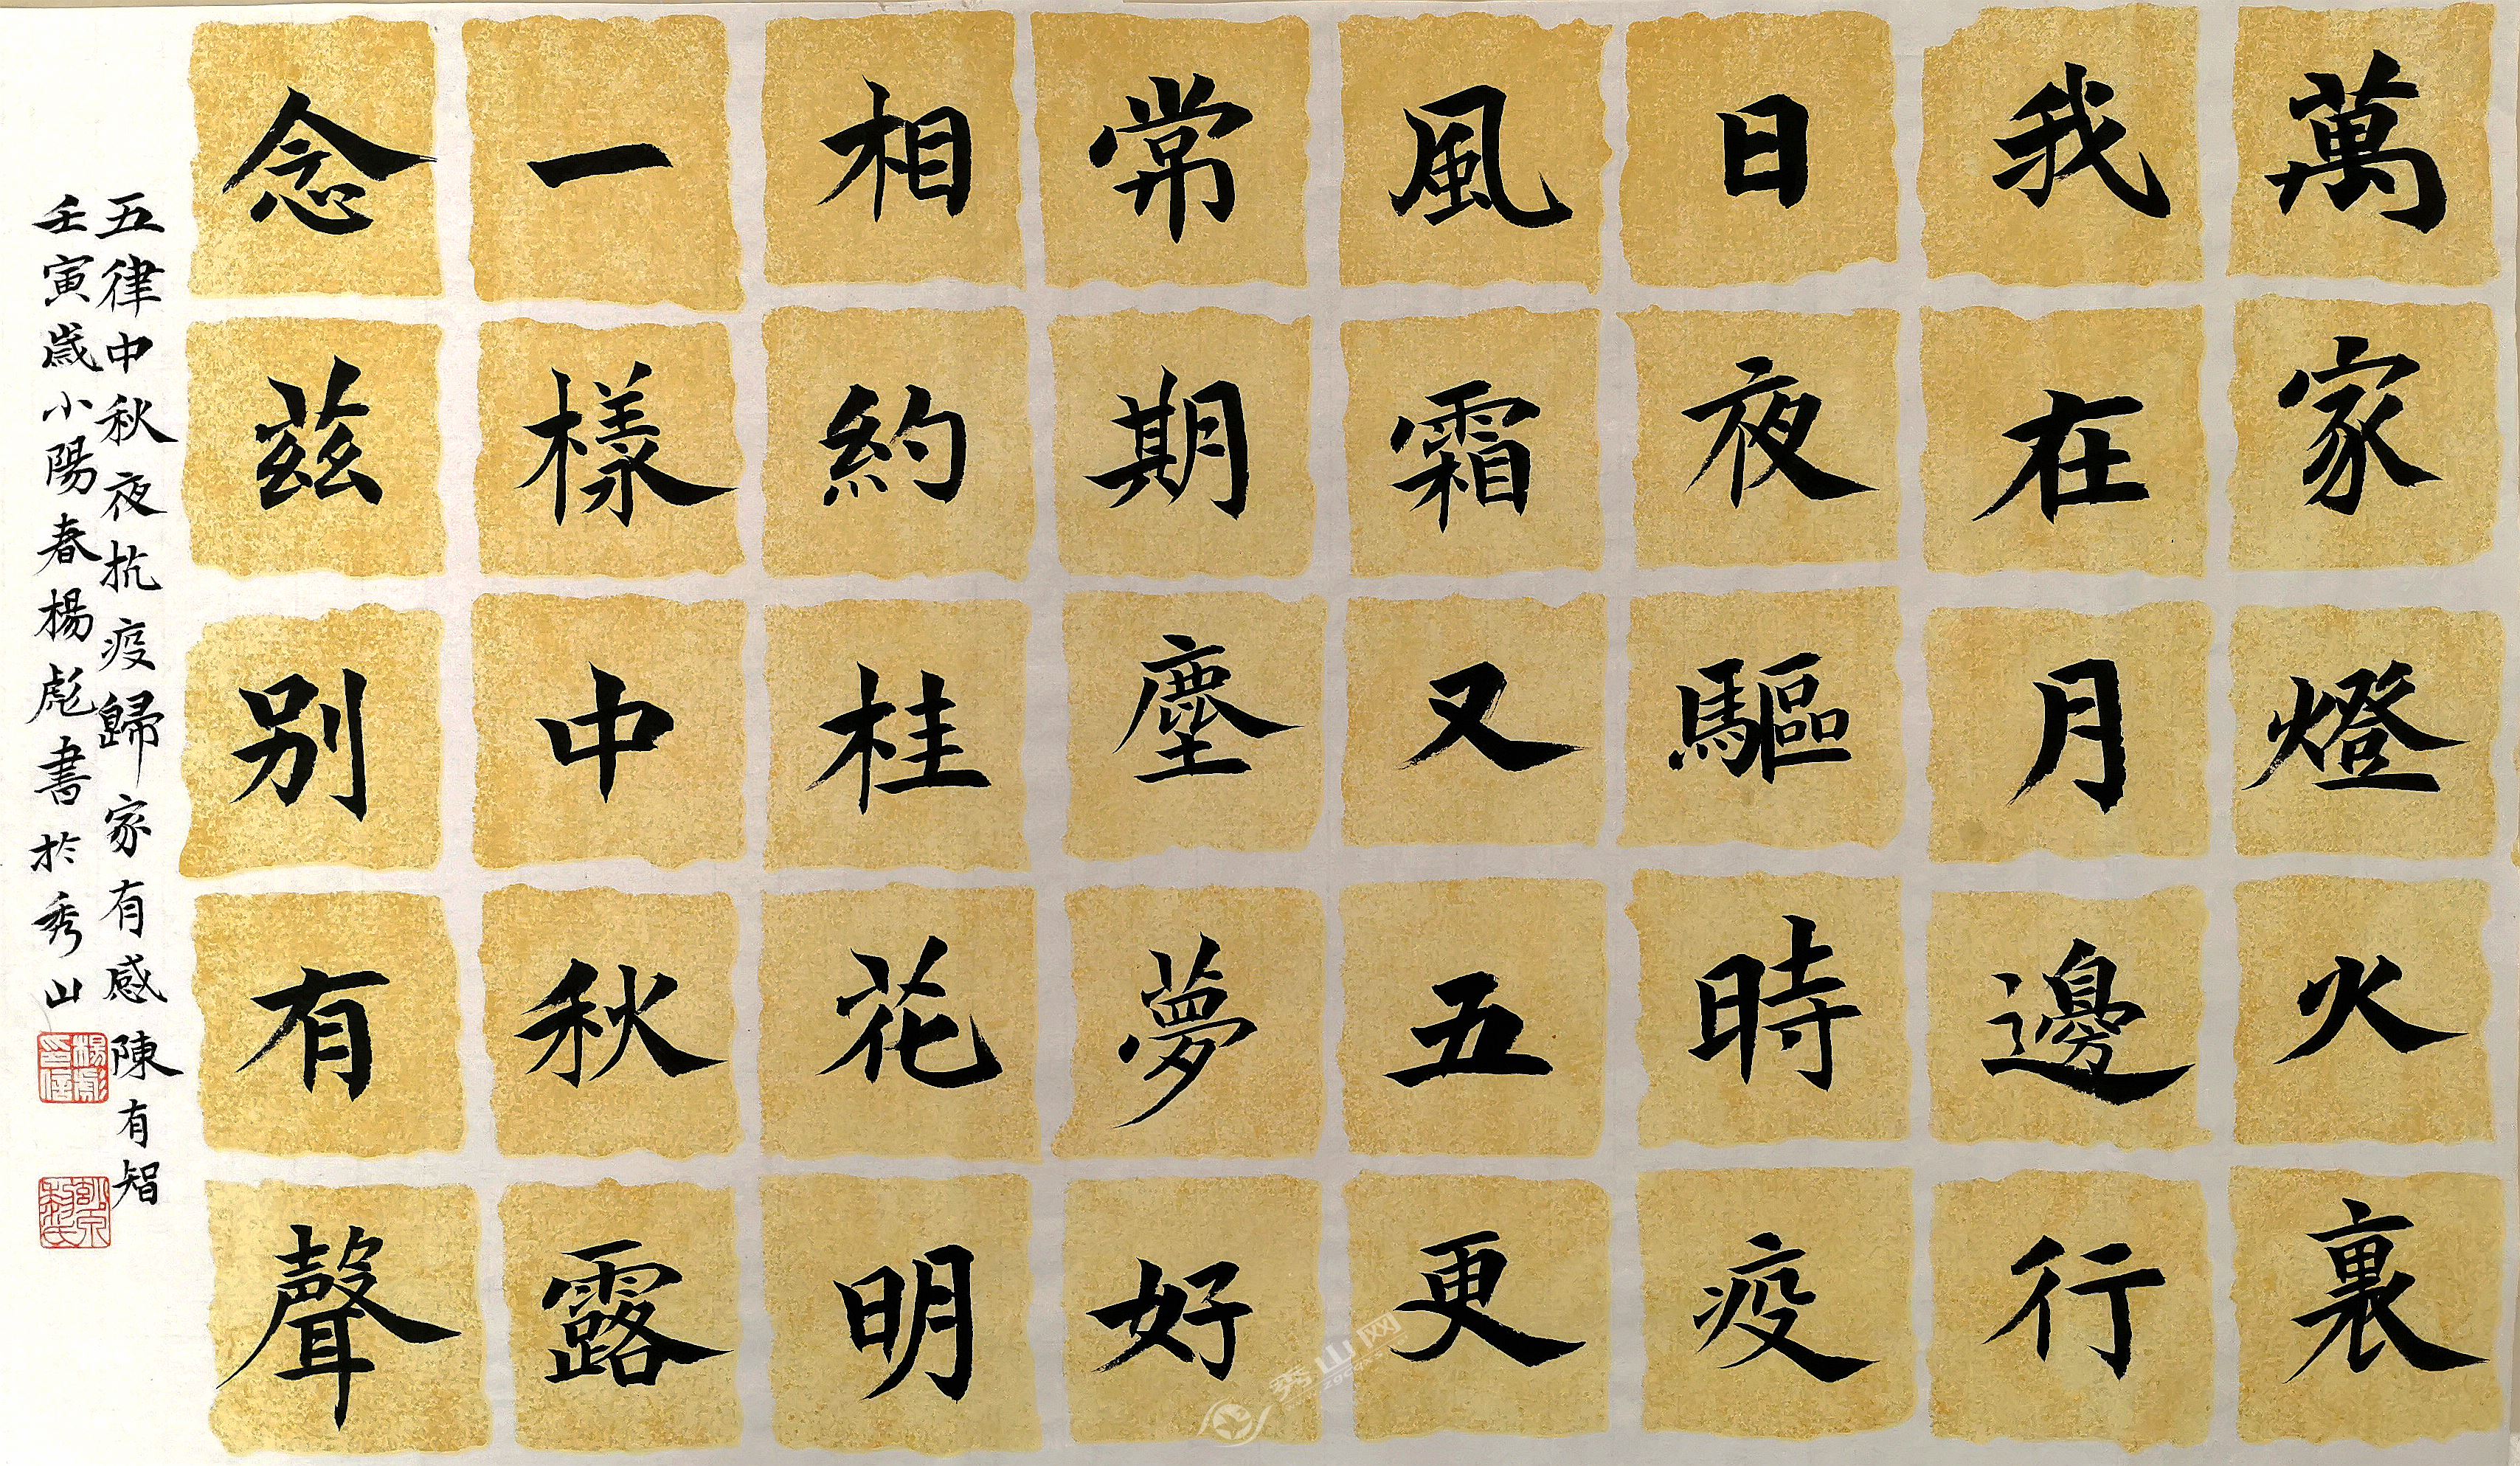 萬家燈火裏
我在月邊行
日夜驅時疫
風霜又五更
常期塵夢好
相約桂花明
一樣中秋露
念茲别有聲
五律中秋夜抗疫歸家有感陳有智
壬寅歲小陽春楊彪書於秀山
楊彪印信
秀山网